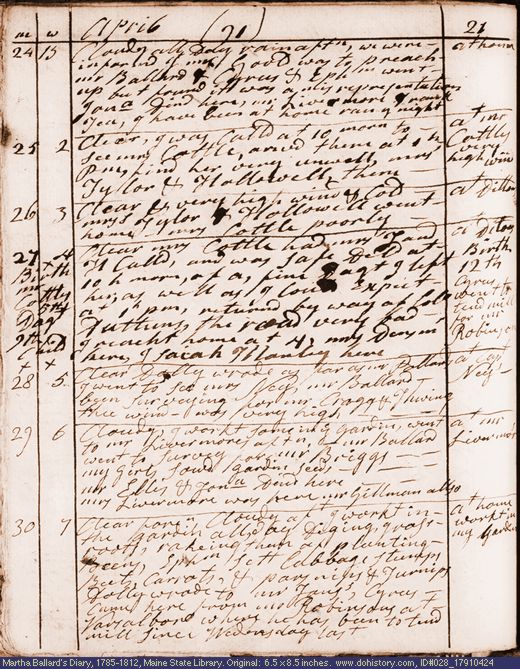 m w April (21) 21
24 B Cloudy all Day rain aftn, we were at home
informed mr Good was to preach
mr Ballard & Cyrus & Eph m went
up but found it was a misrepresentation
Jona Dind here, mrs Livermore & 
Tea, I have been at home rain at night
25 2 Clear, I was Calld at 10 morn to at mr
see mrs Cottle, arivd there at 1 h Cottles
Pm, find her very unwell, mrs very
Tylor & Hollowell there high wind
26 3 Clear & very high wind & Cold at Ditto
mrss Tylor & Hollowell went
home, mrs Cottle poorly
27 4 Clear mrs Cottle had mrs at Ditoes
Calld, and was safe Deld at Birth
10 h morn, of a fine Dagt I left 12th
her as well as I could Expect Cyrus
at 1 pm, returned by way of Colo went to
the road very bad tend mill
I reacht home at 4, mrs Denson for mr
here, & Sarah Manley here Robinson
Cottles
Dagt
9th Child
x x
28 5 Clear Dolly wrode as far as mr Ballards at
I went to see mrs mr Ballard
been Surveying for mr Cragg & Thwing
the wind was very high
29 6 Cloudy, I workt some in my Gardin, went at mr
to mr Livermores aftn, mr Ballard Livermors
went to survey for mr Briggs
my girls sowd Gardin seeds
mrs Ellis & Jona Dind here
mrs Livermore was here mr Gillman allso
30 7 Clear foren Cloudy aftn I workt in at home
the Gardin all day Diging grass workt in
roots, rakeing them of planting my Garden
Beens, Sett Cabbage stumps
Beets, Carrots, & Parsnips & Turnips
Dolly wrode to mr Cyrus
Came here from mr Robinsons at
Varsalboro where he has been to tend
mill since Wednesday last
Martha Ballard's Diary, 1785-1812, Maine State Library. Original: 6.5 x 8.5 inches. www.dohistory.com, ID#028_17910424